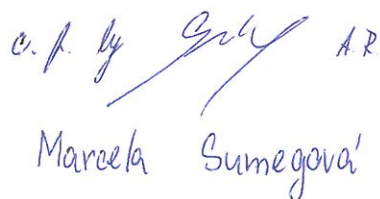 c. f. by A.R.
Marcela Sumegová